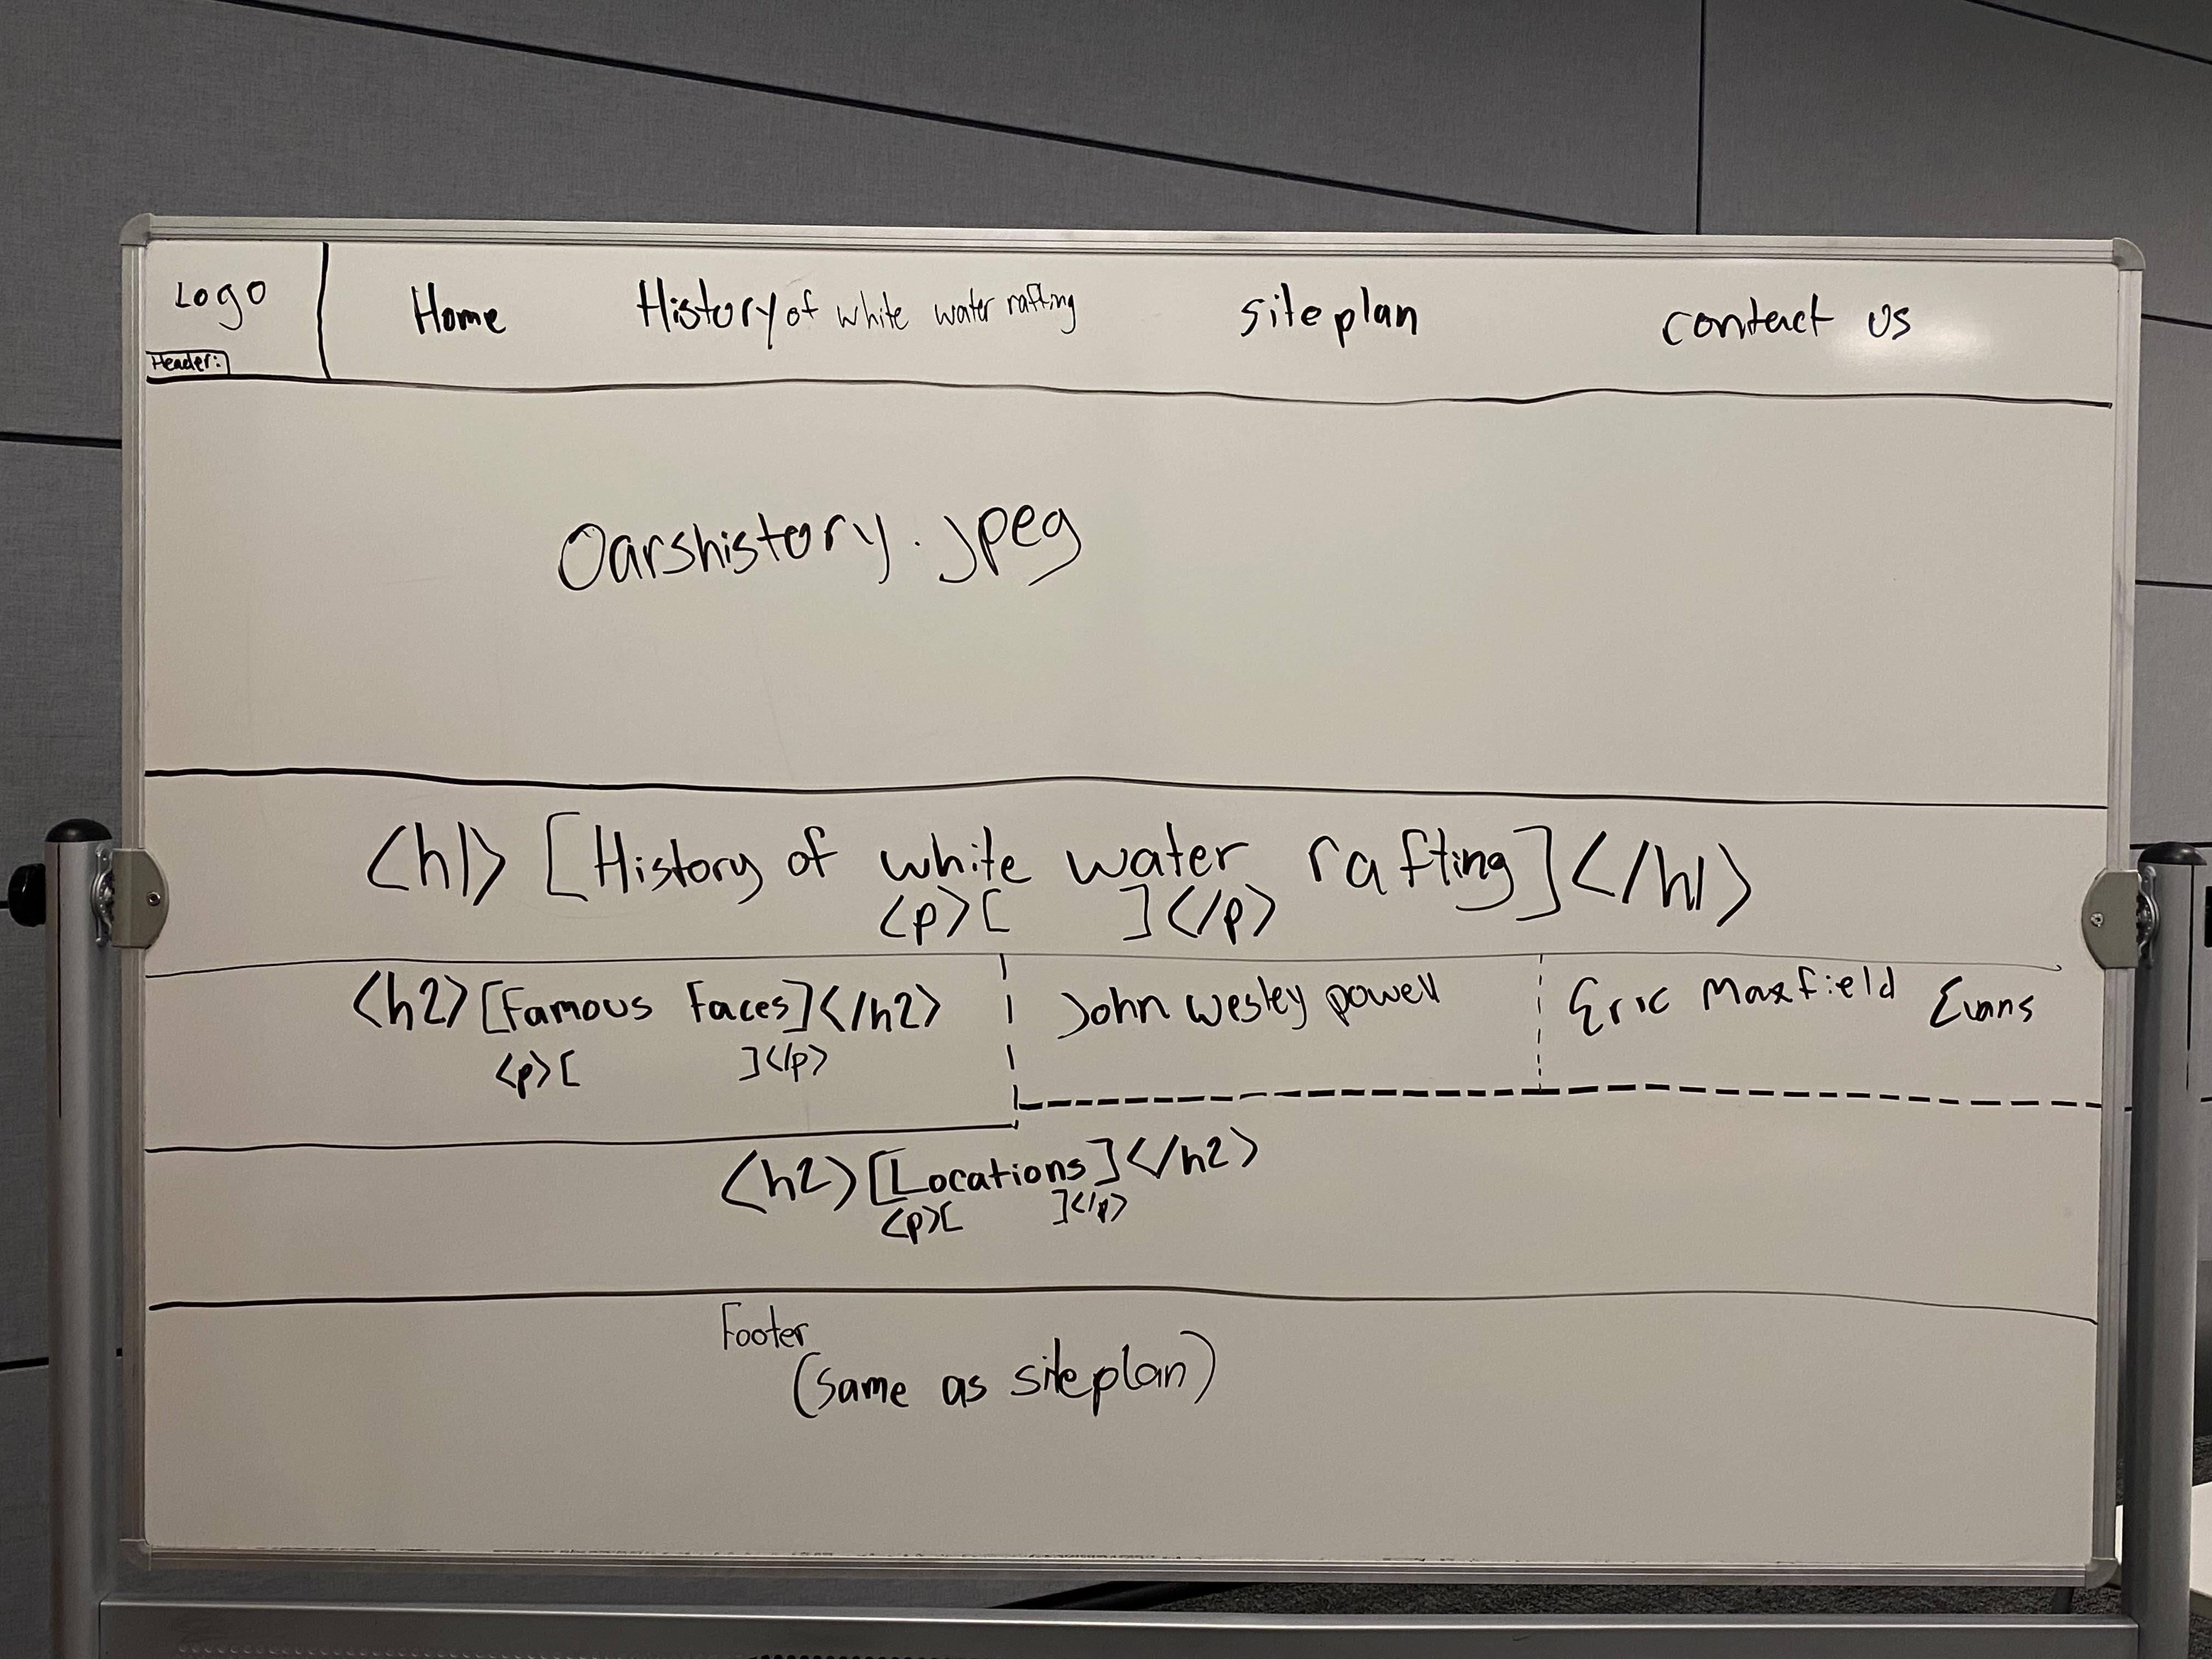 Logo
Header:
Home History of white water rafting siteplan contact us
Oarshistory.jpeg
<h1>[History of white water rafting]</h1>
<p>[ ]</p>
<h2>[Famous Faces]</h2>
<p>[ ]</p>
John Wesley powell
Eric Maxfield Evans
<h2>[Locations]</h2>
<p>[ ]</p>
Footer
(same as siteplan)